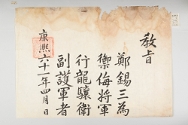 敎旨
鄭錫三爲
禦侮將軍
行龍驤衛
副護軍者
康熙六十一年四月 日